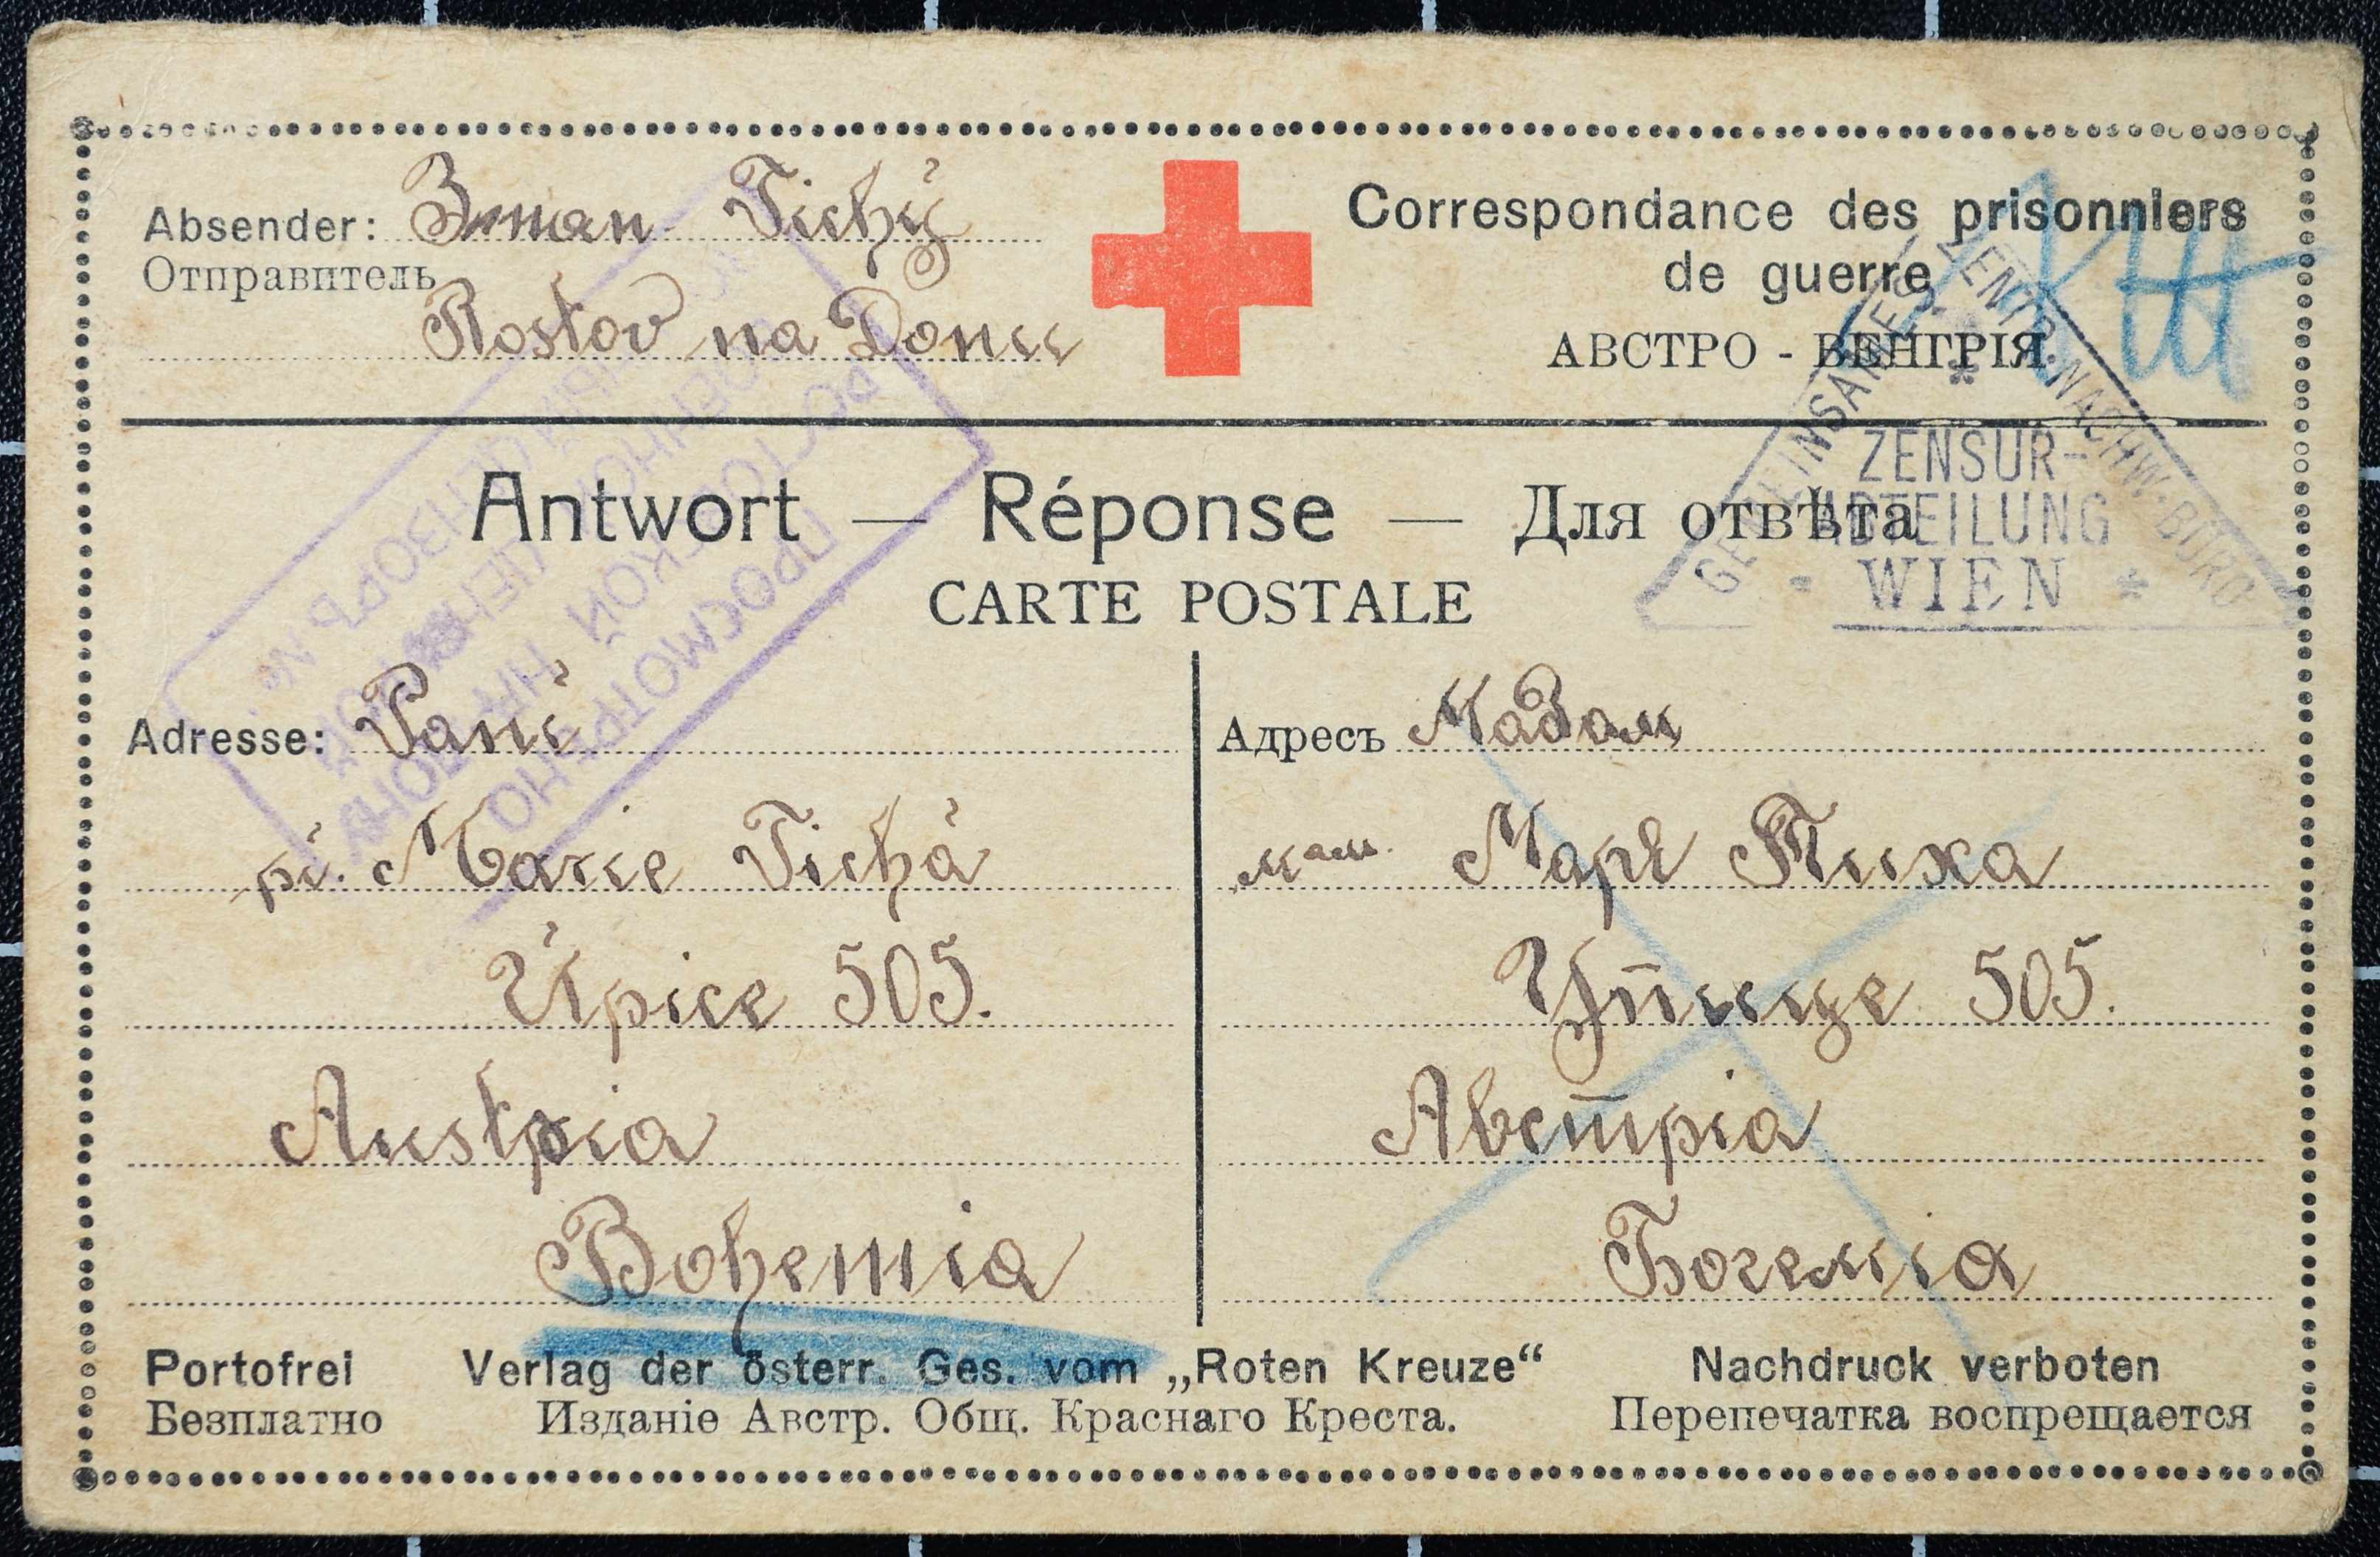 Absender: Zman Tichý
Отправитель
Rostov na Donu
Correspondance des prisonniers
de guerre
АВСТРО - ВЕНГРІЯ.
GEMEINSAMES ZENTR. NACHW. BÜRO
ZENSUR-
ABTEILUNG
* WIEN *
Antwort — Réponse — Для отвѣта
CARTE POSTALE
ПРОСМОТРЕНО
РОСТОВСКОЙ НА ДОНУ
ВОЕННОЙ ЦЕНЗУРОЙ
ВОЕННЫЙ ЦЕНЗОРЪ №
Adresse: Paní
pí. Marie Tichá
Úpice 505.
Austria
Bohemia
Адресъ Мадам
мам. Маря Тиха
Упице 505.
Австріа
Богеміа
Portofrei Verlag der österr. Ges. vom „Roten Kreuze“ Nachdruck verboten
Безплатно Изданіе Австр. Общ. Краснаго Креста. Перепечатка воспрещается